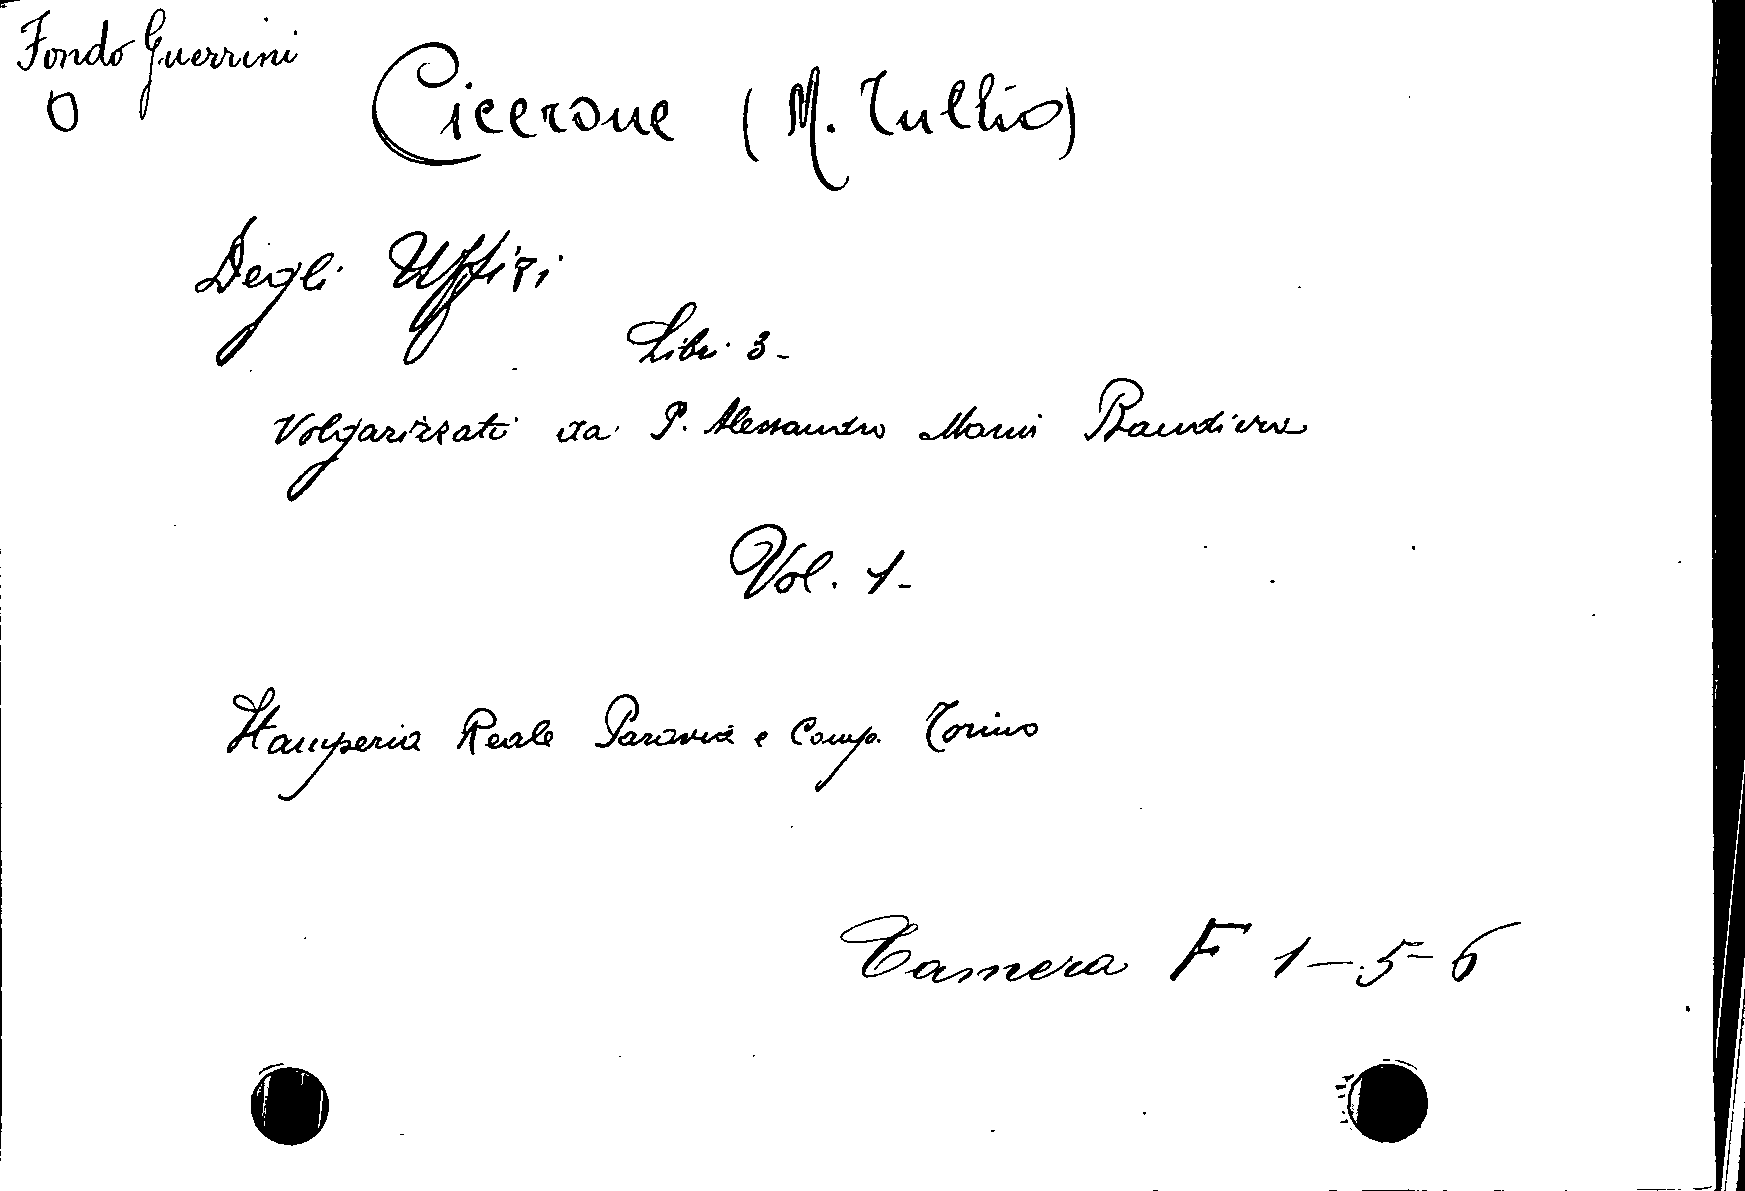 Fondo Guerrini
O
Cicerone (M. Tullio)
Degli Uffizi
Libri 3-
Volgarizzati da P. Alessandro Maria Bandiera
Vol. 1-
Stamperia Reale Paravia e Comp. Torino
Camera F 1-5-6